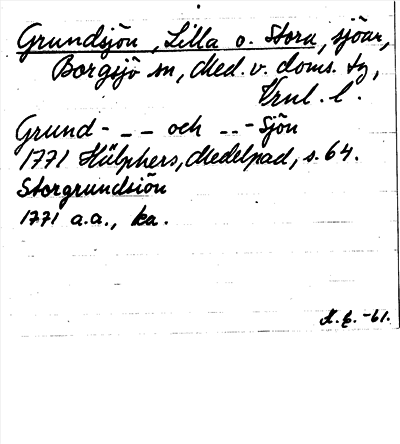 Grundsjön, Lilla o. Stora, sjöar,
Borgsjö sn, Med. v. doms. tg,
Vrnl. l.
Grund- - - och - - -Sjön
1771 Hülphers, Medelpad, s. 64.
Storgrundsiön
1771 a.a., ka.
-61.